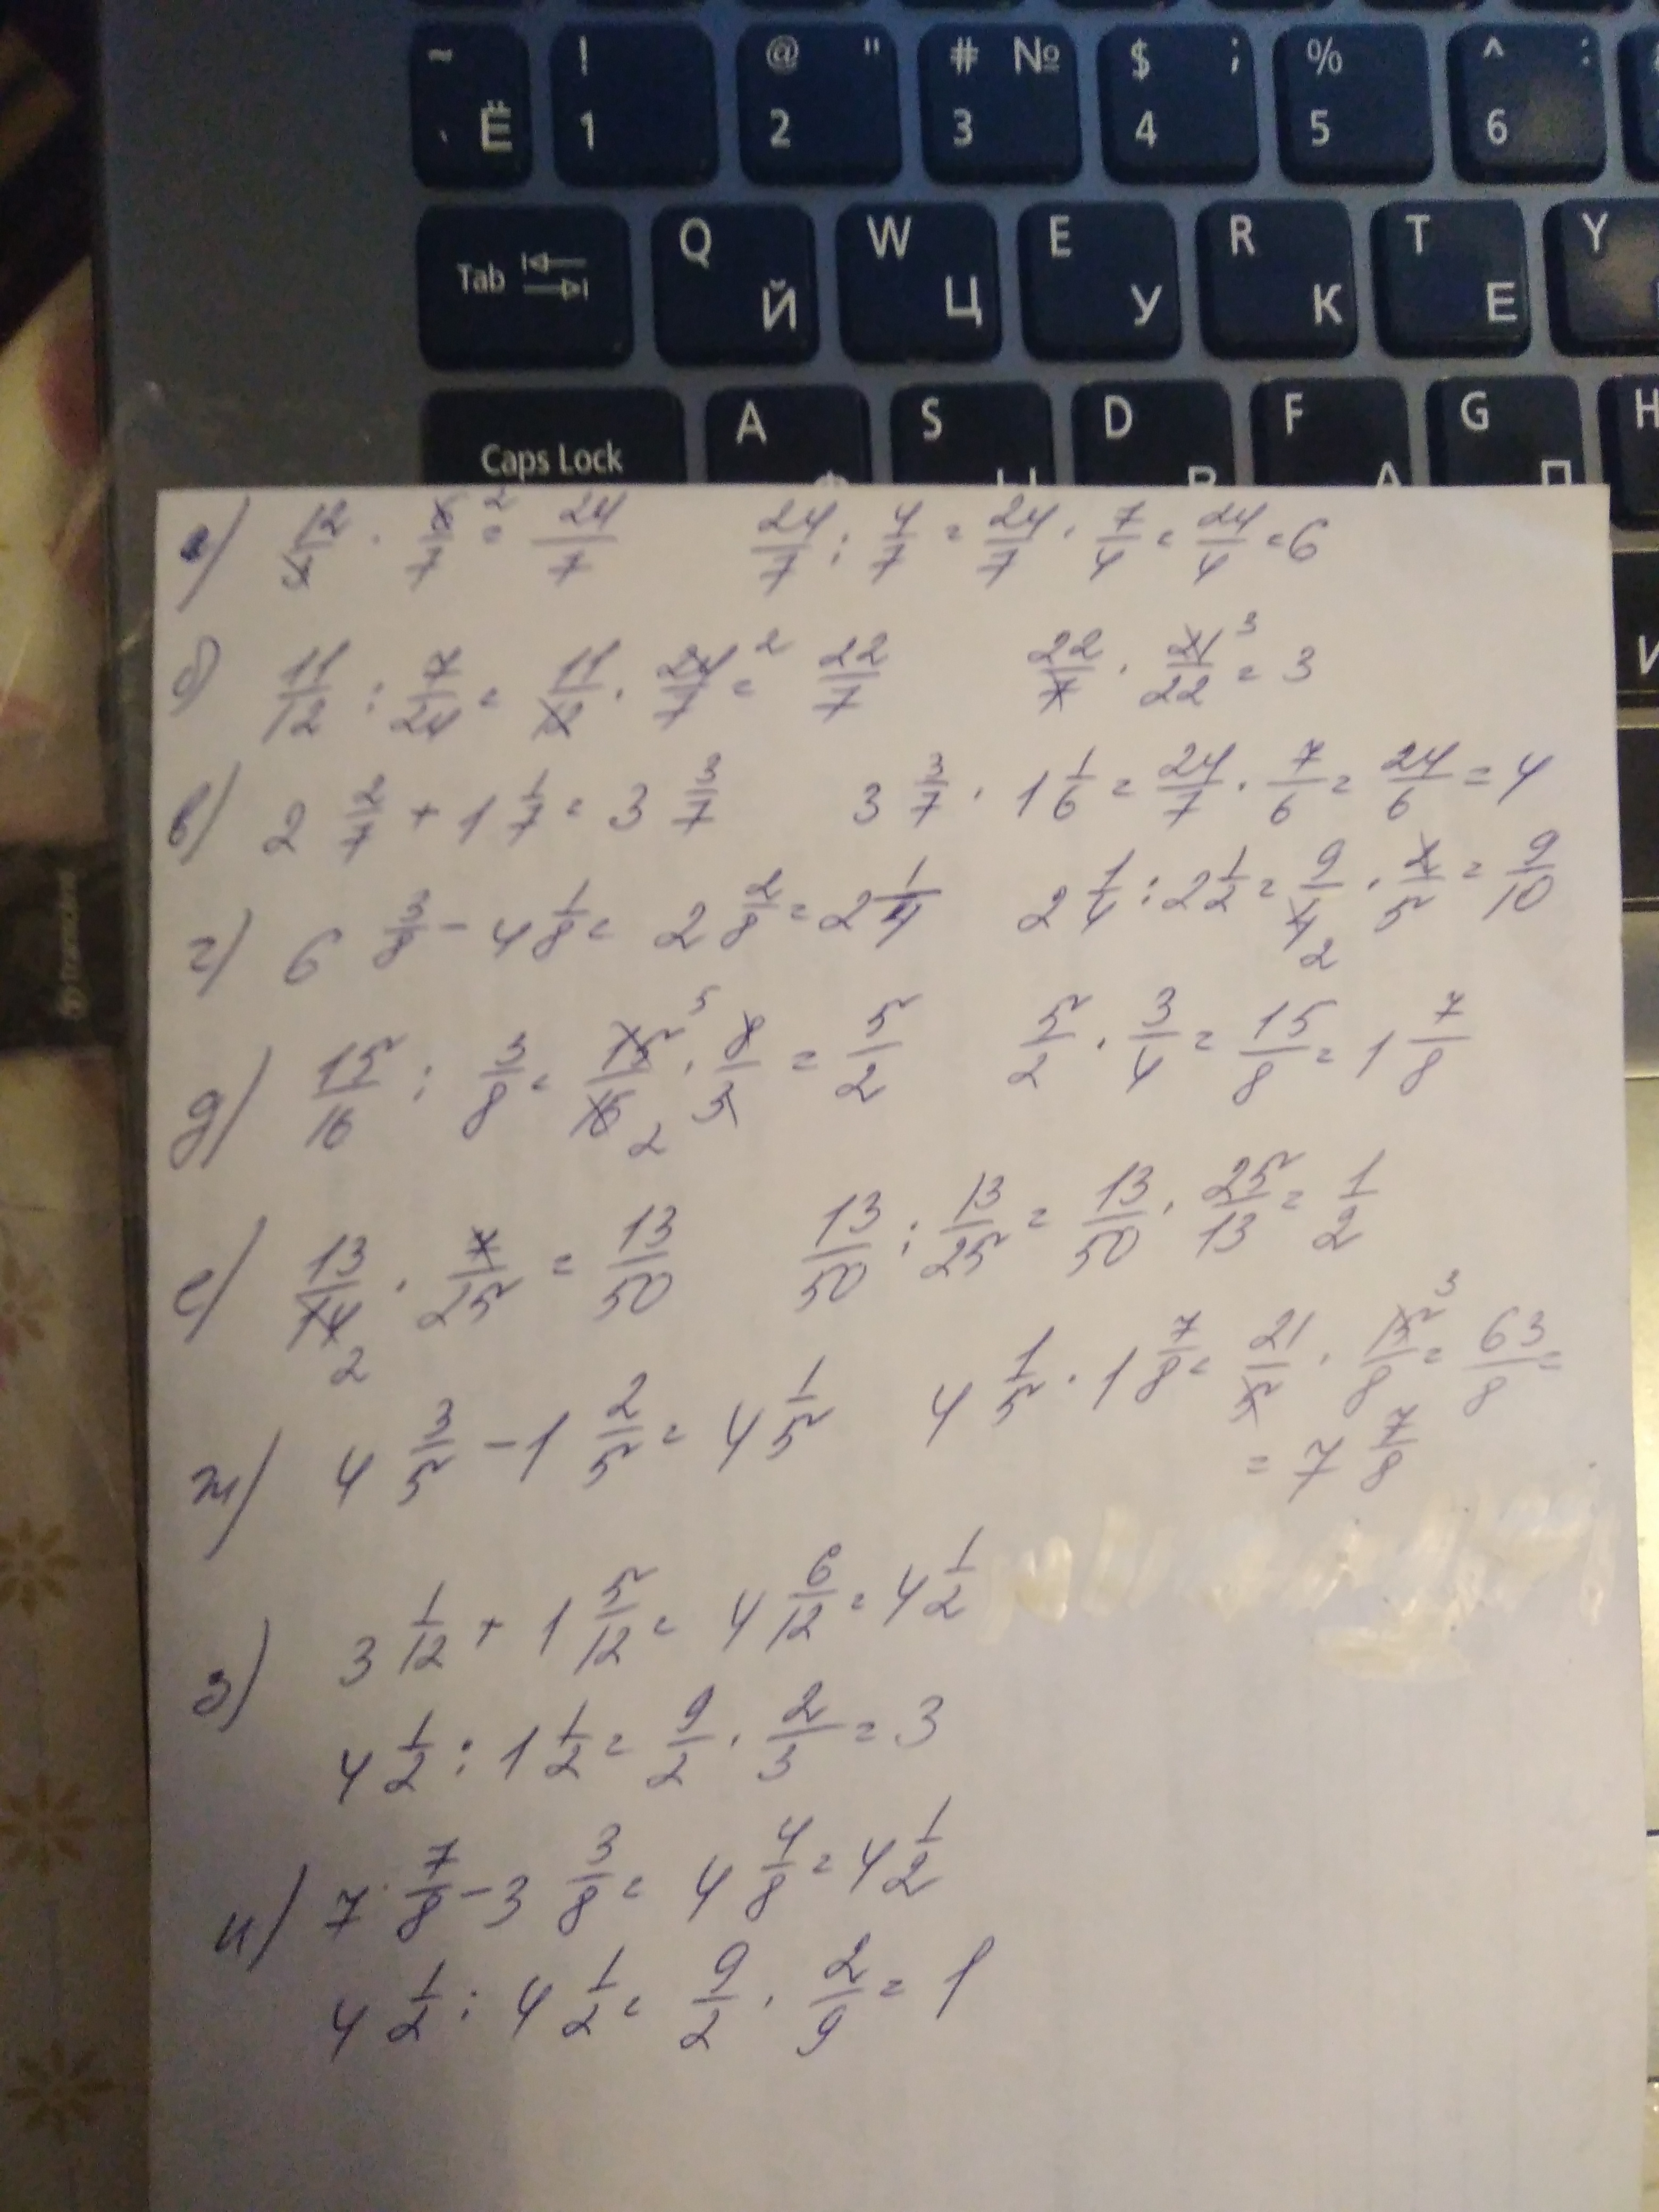 ~ ! @ " # № $ ; % ^ :
` Ё 1 2 3 4 5 6
Tab Q Й W Ц E У R К T Е Y
Caps Lock A S D F G H
а) 12/4 · 8/7 2 = 24/7 24/7 : 4/7 = 24/7 · 7/4 = 24/4 = 6
б) 11/12 : 7/24 = 11/12 · 24/7 2 = 22/7 22/7 · 21/22 3 = 3
в) 2 2/7 + 1 1/7 = 3 3/7 3 3/7 · 1 1/6 = 24/7 · 7/6 = 24/6 = 4
г) 6 3/8 - 4 1/8 = 2 2/8 = 2 1/4 2 1/4 : 2 1/2 = 9/4 2 · 2/5 = 9/10
д) 15/16 : 3/8 = 15 5/16 2 · 8/3 = 5/2 5/2 · 3/4 = 15/8 = 1 7/8
е) 13/14 2 · 7/25 = 13/50 13/50 : 13/25 = 13/50 · 25/13 = 1/2
ж) 4 3/5 - 1 2/5 = 4 1/5 4 1/5 · 1 7/8 = 21/5 · 15 3/8 = 63/8 =
= 7 7/8
з) 3 1/12 + 1 5/12 = 4 6/12 = 4 1/2
4 1/2 : 1 1/2 = 9/2 · 2/3 = 3
и) 7 7/8 - 3 3/8 = 4 4/8 = 4 1/2
4 1/2 : 4 1/2 = 9/2 · 2/9 = 1